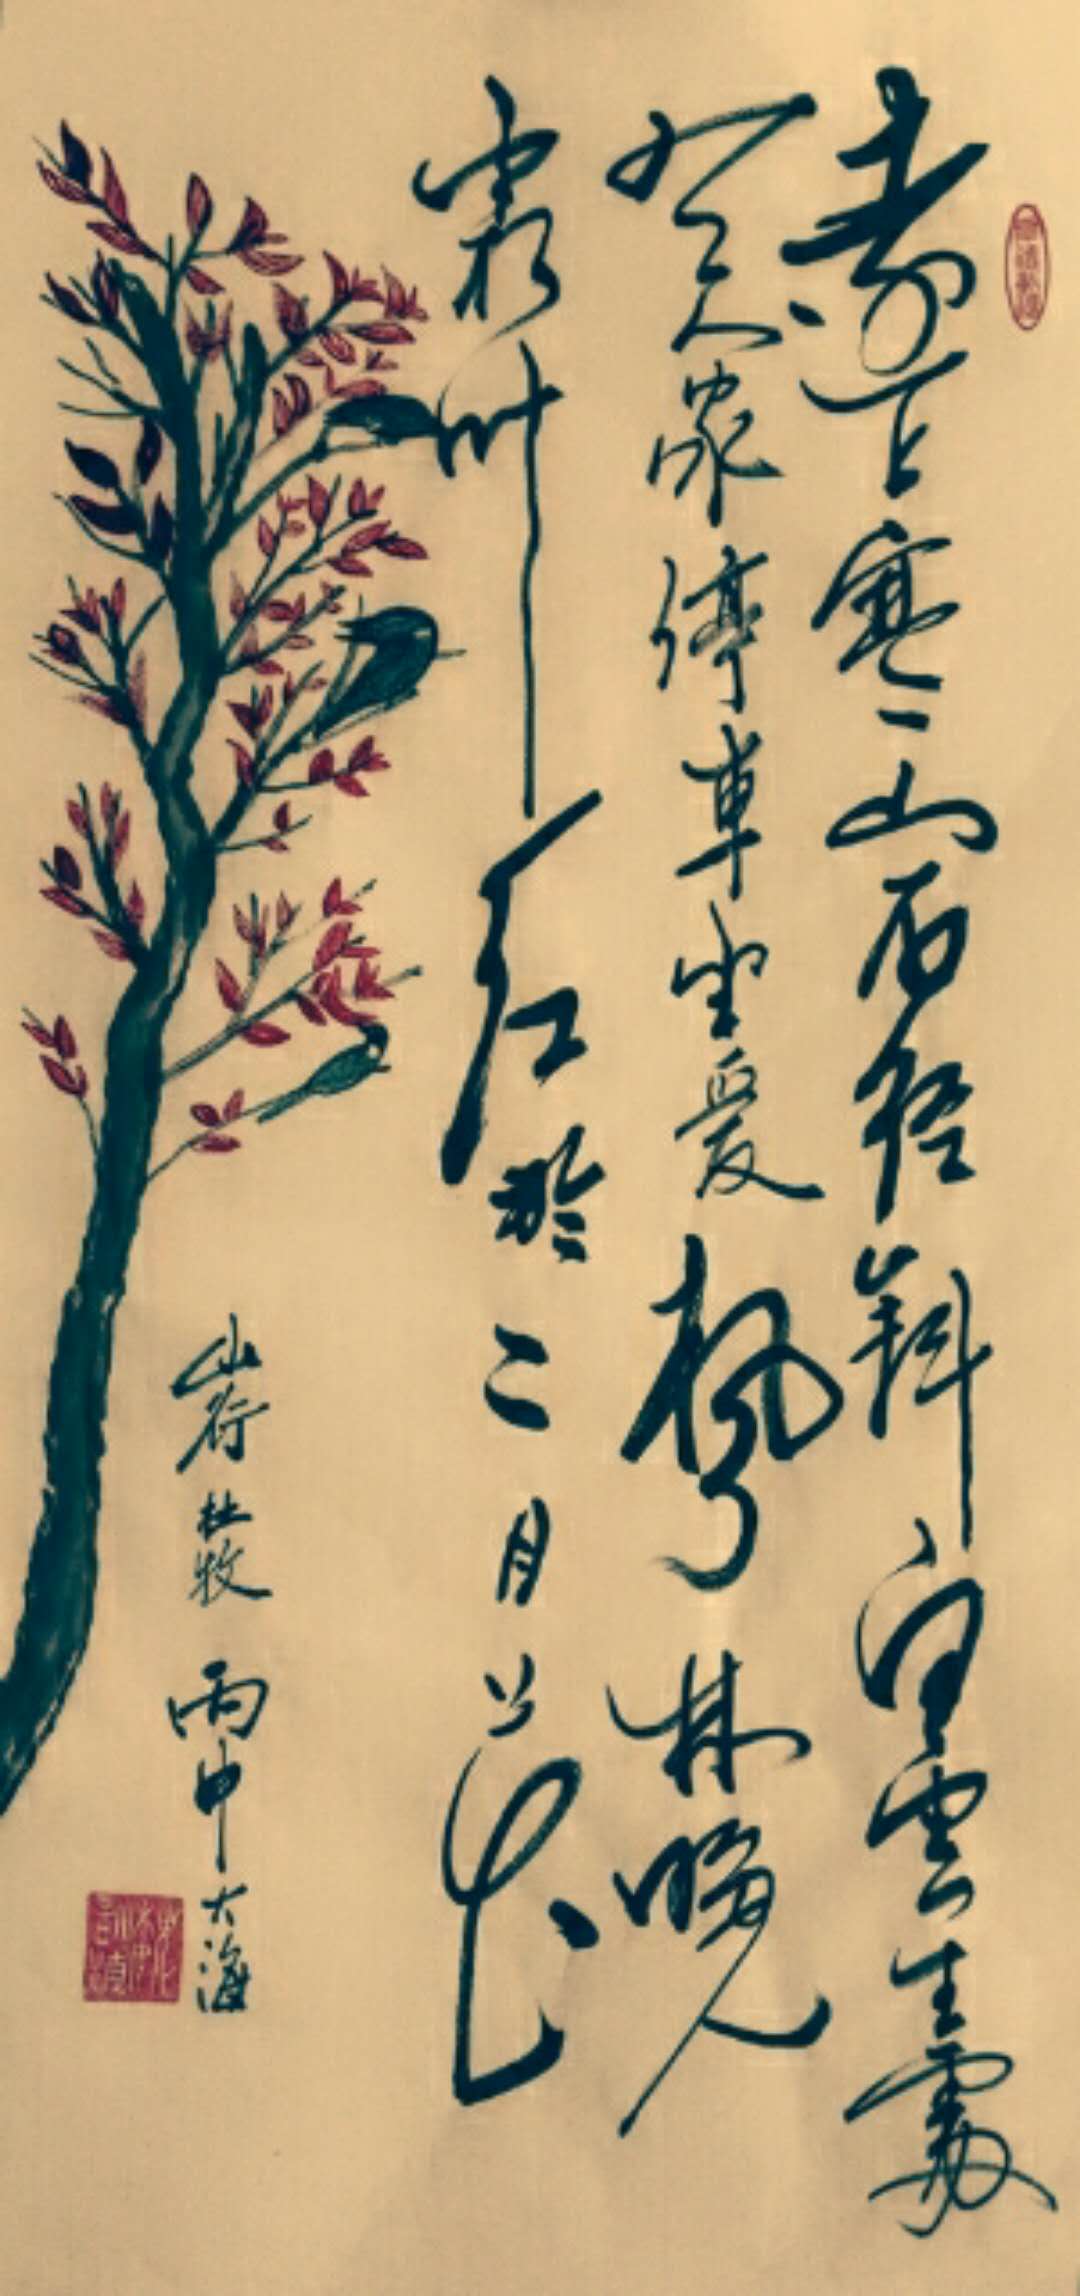 遠上寒山石径斜白雲生處
有人家停車坐愛楓林晚
霜叶红於二月花
山行 杜牧 丙申 大海